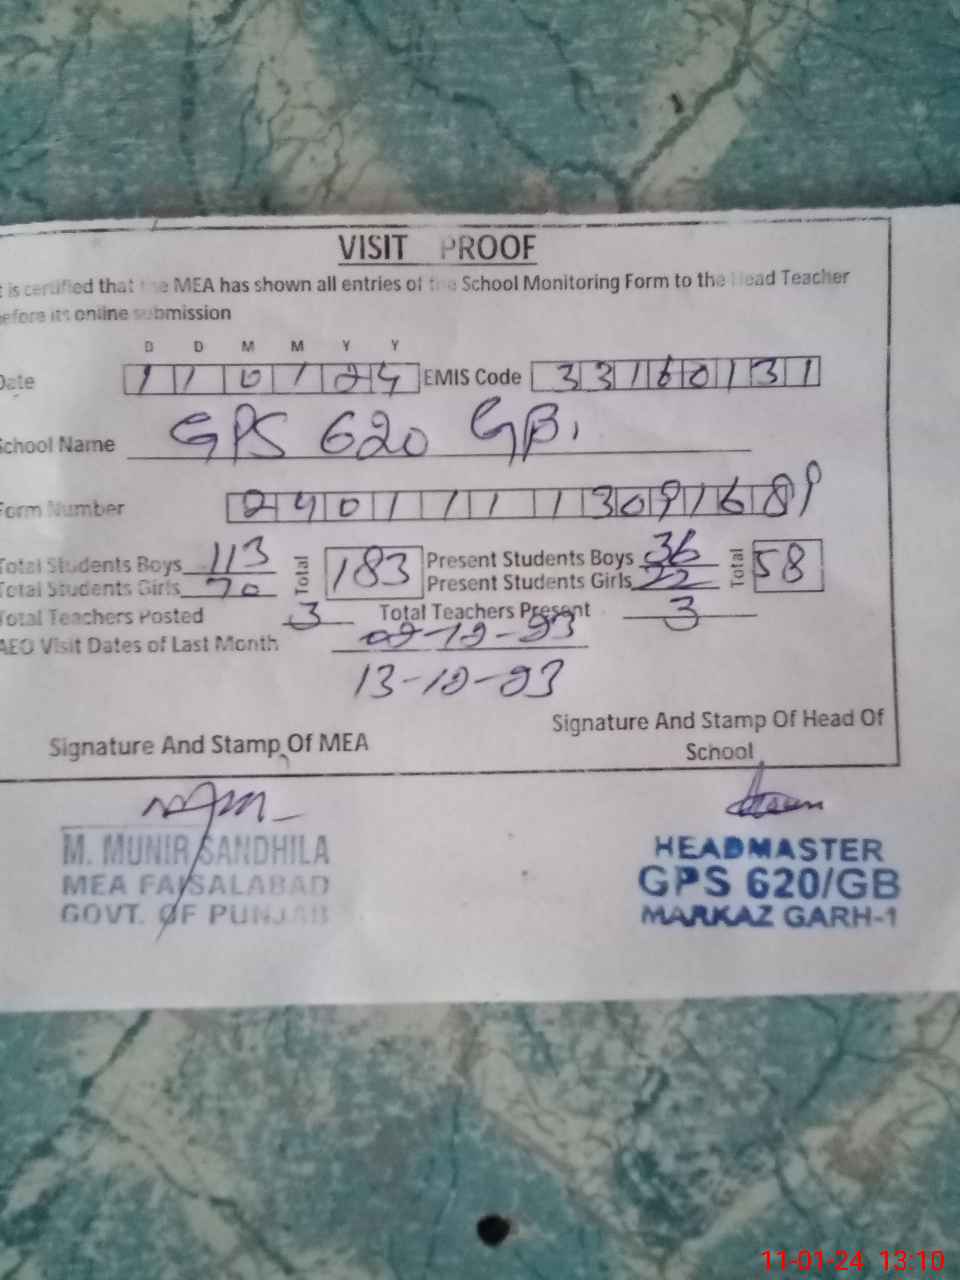 VISIT PROOF
t is certified that the MEA has shown all entries of the School Monitoring Form to the Head Teacher
efore its online submission
D D M M Y Y
Date 110124 EMIS Code 33160131
School Name GPS 620 GB.
Form Number
Total Students Boys 113 Total 183 Present Students Boys 36 Total 58
Total Students Girls 70 Present Students Girls 22
Total Teachers Posted 3 Total Teachers Present 3
AEO Visit Dates of Last Month
13-12-23
Signature And Stamp Of MEA
Signature And Stamp Of Head Of
School
M. MUNIR SANDHILA
MEA FAISALABAD
GOVT. OF PUNJAB
HEADMASTER
GPS 620/GB
MARKAZ GARH-1
11-01-24 13:10